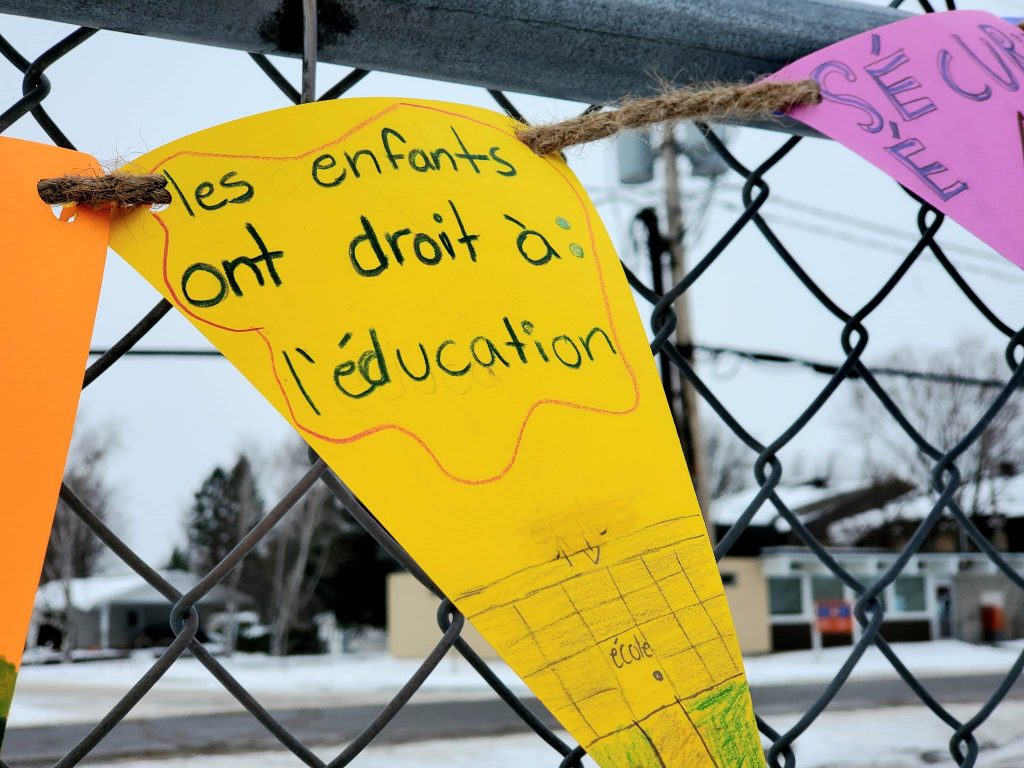 les enfants
ont droit à:
l'éducation
école
SÉCUR